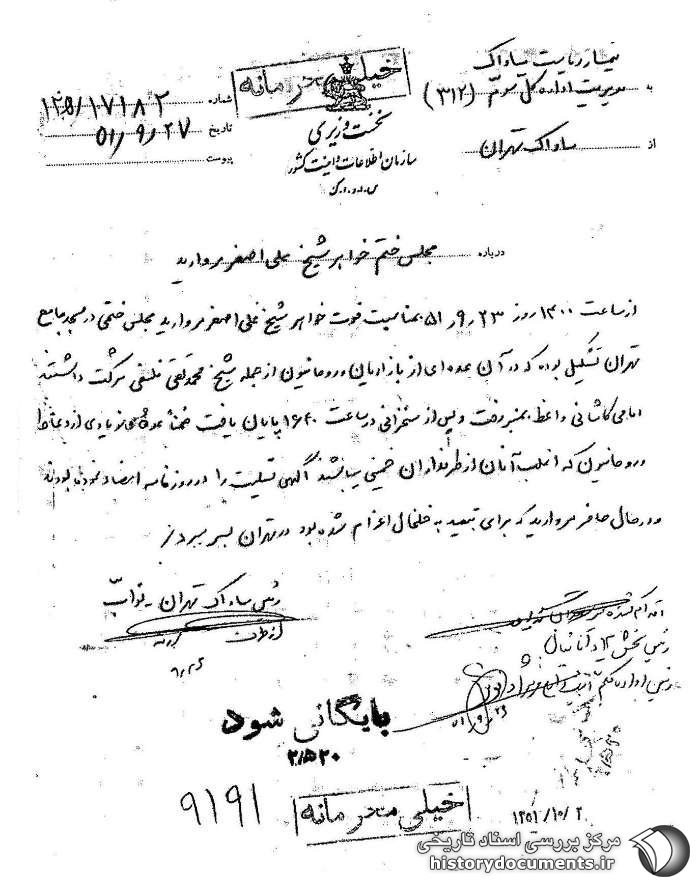 خیلی محرمانه
تیمسار ریاست ساواک
به مدیریت اداره کل سوم (۳۱۲)
از ساواک تهران
نخست وزیری
سازمان اطلاعات و امنیت کشور
س.ا.و.ا.ک
شماره ۱۲۵/۱۷۱۸۲
تاریخ ۵۱/۹/۲۷
پیوست
درباره مجلس ختم خواهر شیخ علی اصغر مروارید
از ساعت ۱۴۰۰ روز ۵۱/۹/۲۳ بمناسبت فوت خواهر شیخ علی اصغر مروارید مجلس ختمی در مسجد جامع
تهران تشکیل بوده که در آن عده ای از بازاریان و روحانیون از جمله شیخ محمدتقی فلسفی شرکت داشتند
امامی کاشانی واعظ بمنبر رفت و پس از سخنرانی در ساعت ۱۶۴۰ پایان یافت ضمناً عده زیادی از وعاظ
و روحانیون که اغلب آنان از طرفداران خمینی میباشند آگهی تسلیت را در روزنامه امضاء نموده بودند
و در حال حاضر مروارید که برای تبعید به خلخال اعزام شده بود در تهران بسر میبرد
رئیس ساواک تهران - نواب
از طرف
۹/۲۶
اقدام کننده
رئیس بخش
رئیس اداره یکم
بایگانی شود
۲/۵۲۰
۹۱۹۱
خیلی محرمانه
۱۳۵۱/۱۰/۲
مرکز بررسی اسناد تاریخی
historydocuments.ir